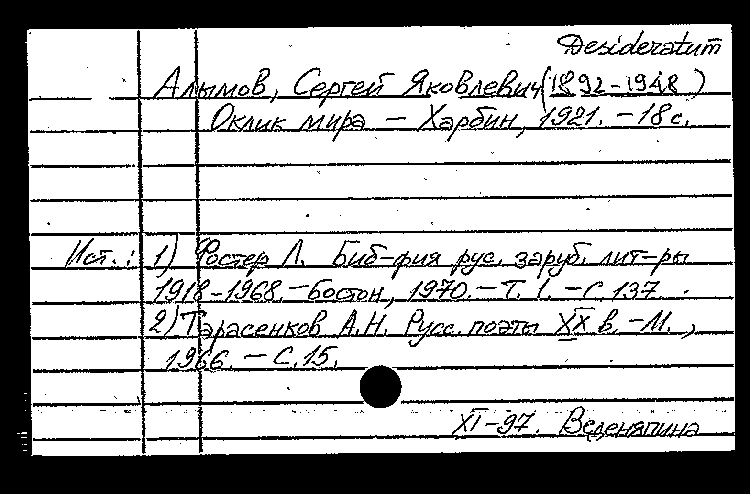 Desideratum
Алымов, Сергей Яковлевич (1892-1948)
Оклик мира — Харбин, 1921. - 18 с.
Ист.: 1) Фостер Л. Биб-фия рус. заруб. лит-ры
1918-1968. - Бостон, 1970. - Т. 1. - С. 137.
2) Тарасенков А.Н. Русс. поэты XX в. - М.,
1966. - С. 15.
XI-97. Веденяпина